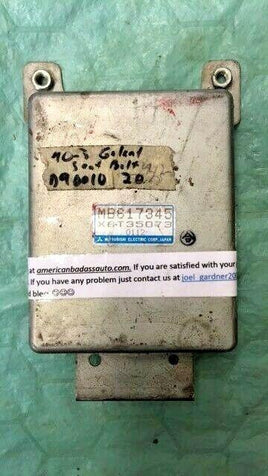 90-3 Galant
Seat Belt
D90010 20
MB617345
X6T35073
0112
MITSUBISHI ELECTRIC CORP. JAPAN
at americanbadassauto.com. If you are satisfied with your
If you have any problem just contact us at joel_gardner20